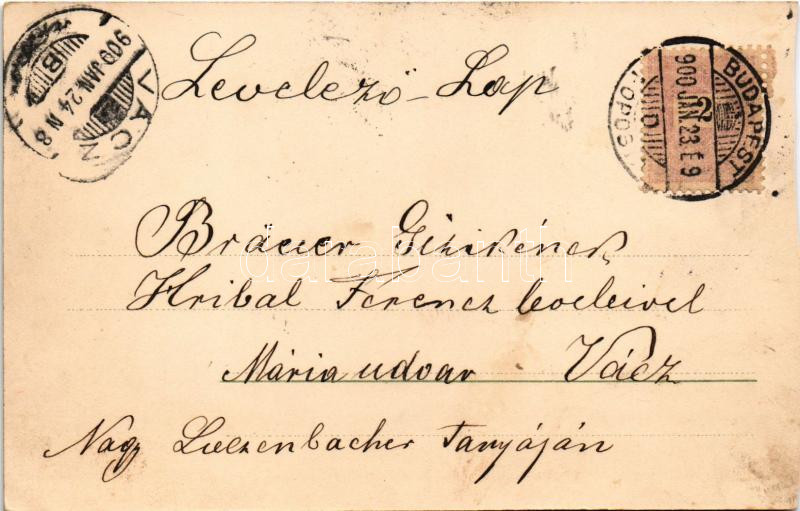 VÁCZ
900 JAN. 24 N 8
B
Levelező-Lap
BUDAPEST
900 JAN 23 E 9
2
D
Bräuer Gizikének
Hribal Ferencz leveleivel
Mária udvar Vácz
Nagy Luczenbacher Tanyáján
darabanth